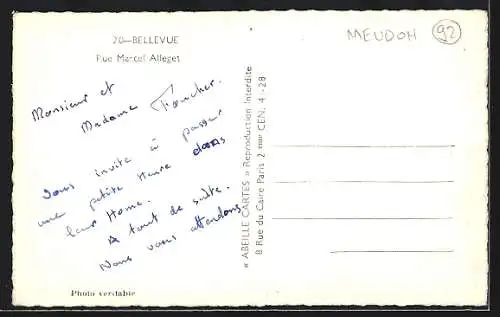 20—BELLEVUE
Rue Marcel Alleget
MEUDON 92
Monsieur et
Madame Foucher.
Vous invite à passer
une petite heure dans
leur Home.
A tout de suite.
Nous vous attendons
« ABEILLE CARTES » Reproduction Interdite
8 Rue du Caire Paris 2 eme CEN. 41-28
Photo veritable